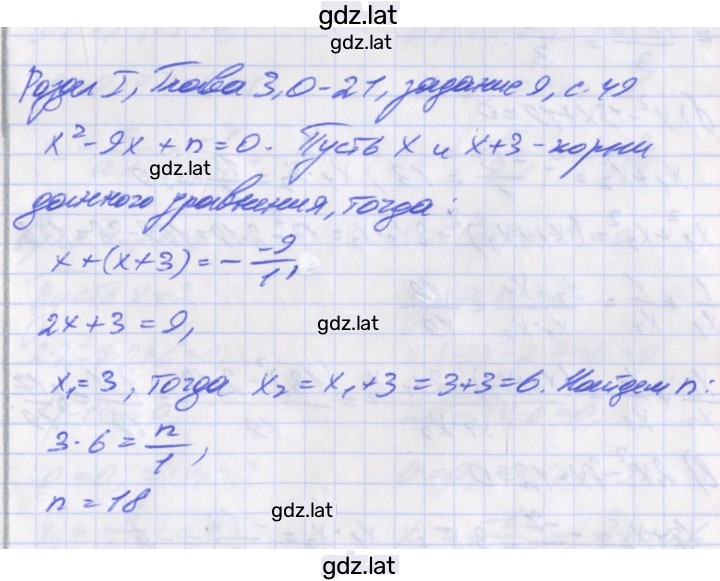 gdz.lat
Раздел I, Глава 3, О-21, задание 9, с. 49
x² - 9x + n = 0. Пусть x и x+3 - корни
gdz.lat
данного уравнения, тогда:
x + (x+3) = - -9/1,
2x + 3 = 9,
gdz.lat
x₁ = 3, тогда x₂ = x₁ + 3 = 3+3 = 6. Найдем n:
3 · 6 = n/1,
n = 18
gdz.lat
gdz.lat